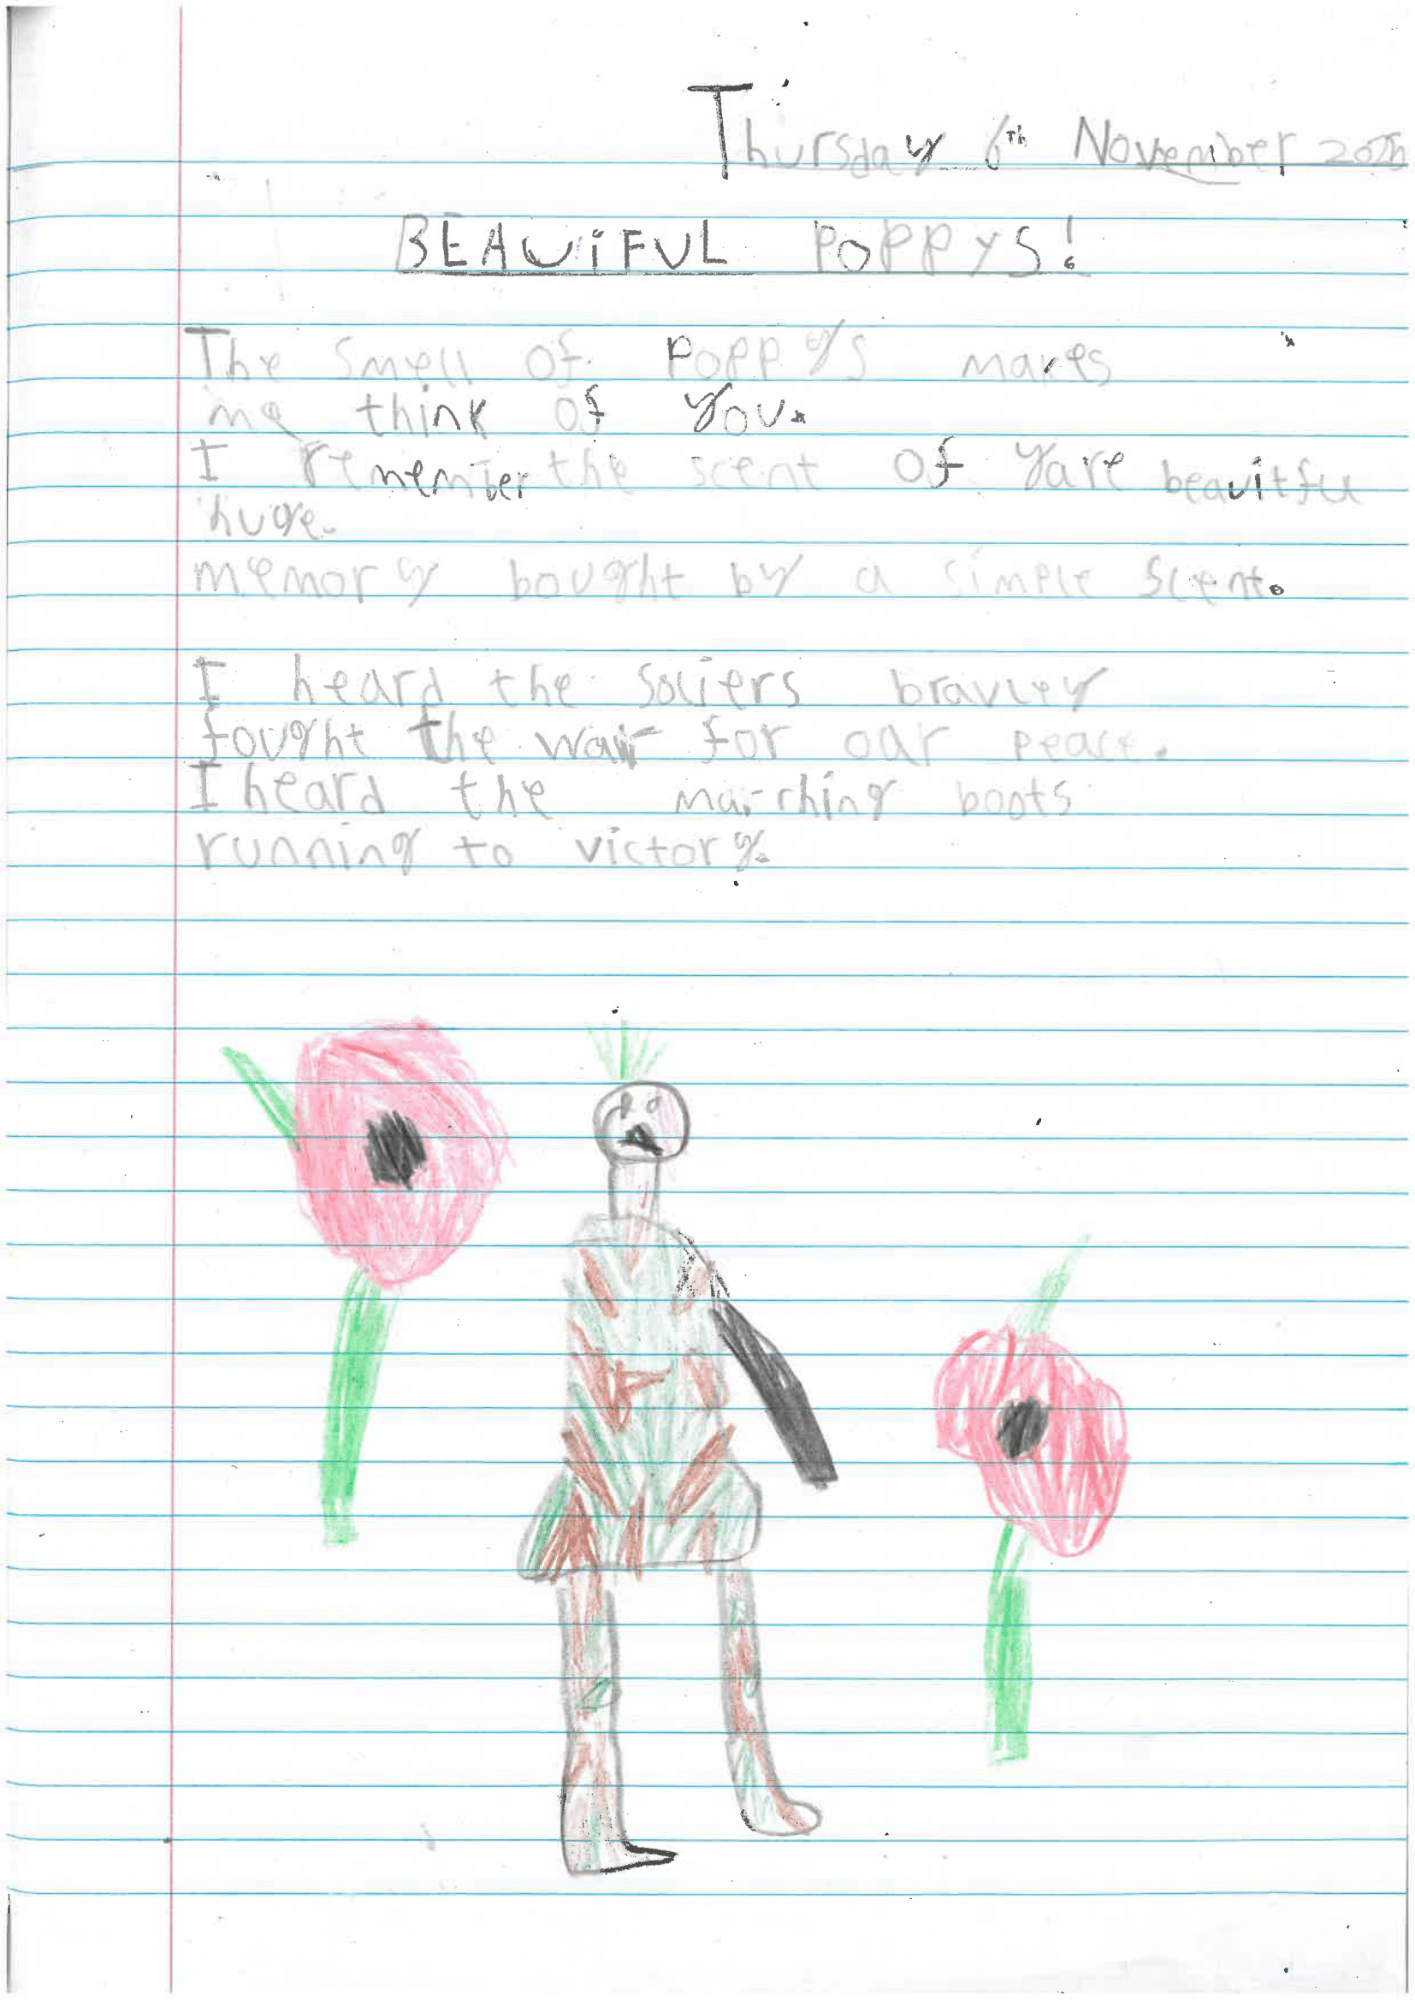 Thursday 6th November 2025
BEAUIFUL POPPYS!
The smell of poppys makes
me think of you.
I remember the scent of yare beauitful
huge.
memory bought by a simple scent.
I heard the soliers bravley
fought the war for our peace.
I heard the marching boots
running to victory.